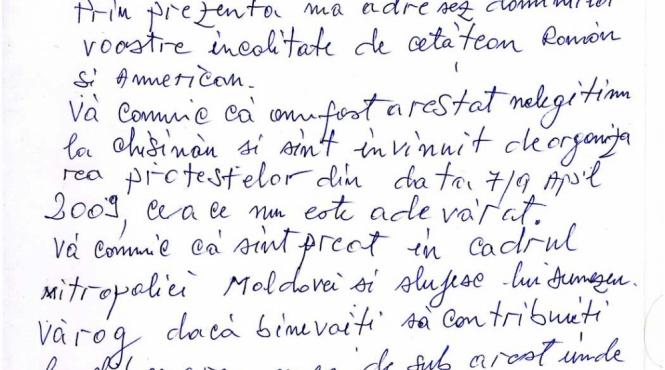 Prin prezenta mă adresez dumnilor
voastre în calitate de cetățean Român
si Ammerican.
Vă comunic că am fost arestat nelegitim
la chisinău si sînt învinuit de organiza
rea protestelor din data 7/9 April
2009, ceea ce nu este adevărat.
Vă comunic că sînt preot în cadrul
mitropoliei Moldovei si slujesc lui Dumezeu.
Vă rog dacă binevoiti să contribuiti
de sub arest unde